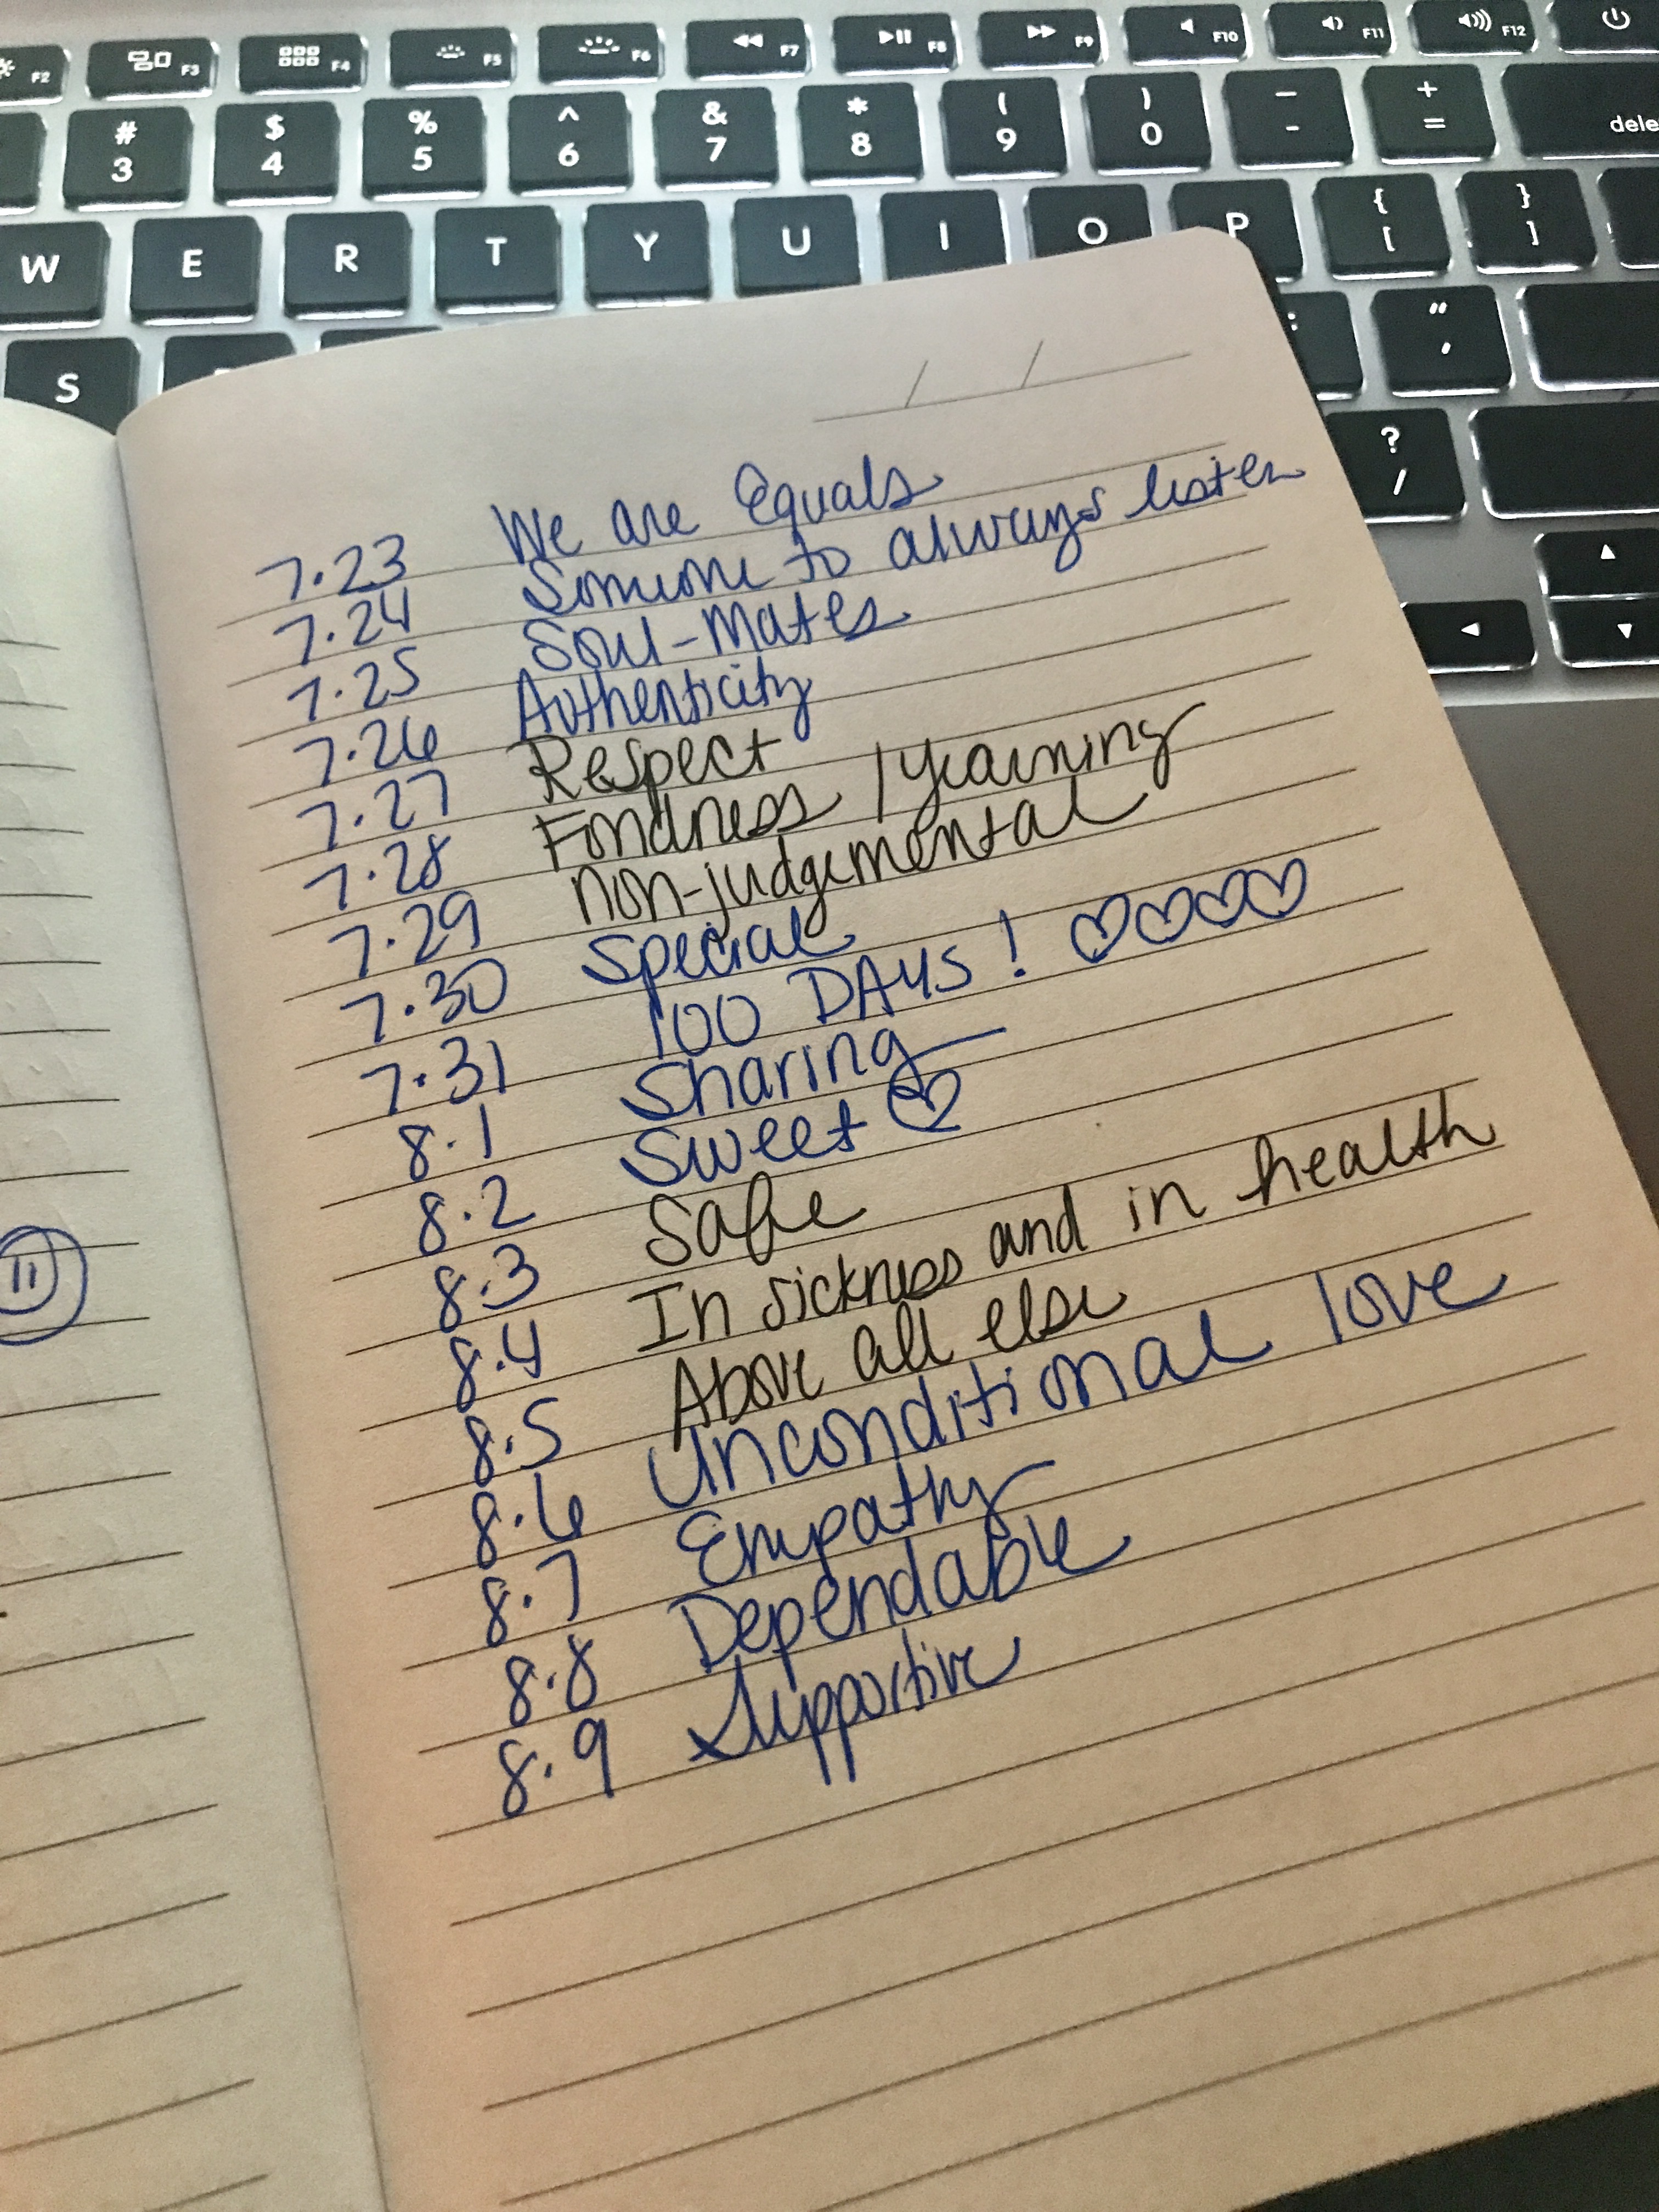 F2 F3 F4 F5 F6 F7 F8 F9 F10 F11 F12
# $ % ^ & * ( ) — +
3 4 5 6 7 8 9 0 - = dele
W E R T Y U I O P { [ } ]
S : " '
? /
/ /
7.23 We are Equals
7.24 Someone to always listen
7.25 Soul-Mates
7.26 Authenticity
7.27 Respect
7.28 Fondness / yearning
7.29 non-judgemental
7.30 Special
7.31 100 DAYS! ♡♡♡♡
8.1 Sharing
8.2 Sweet ♡
8.3 Safe
8.4 In sickness and in health
8.5 Above all else
8.6 Unconditional love
8.7 Empathy
8.8 Dependable
8.9 Supportive